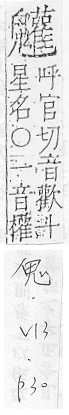 呼官切音歡斗
星名○一音權
鬼
·
V13
·
p30